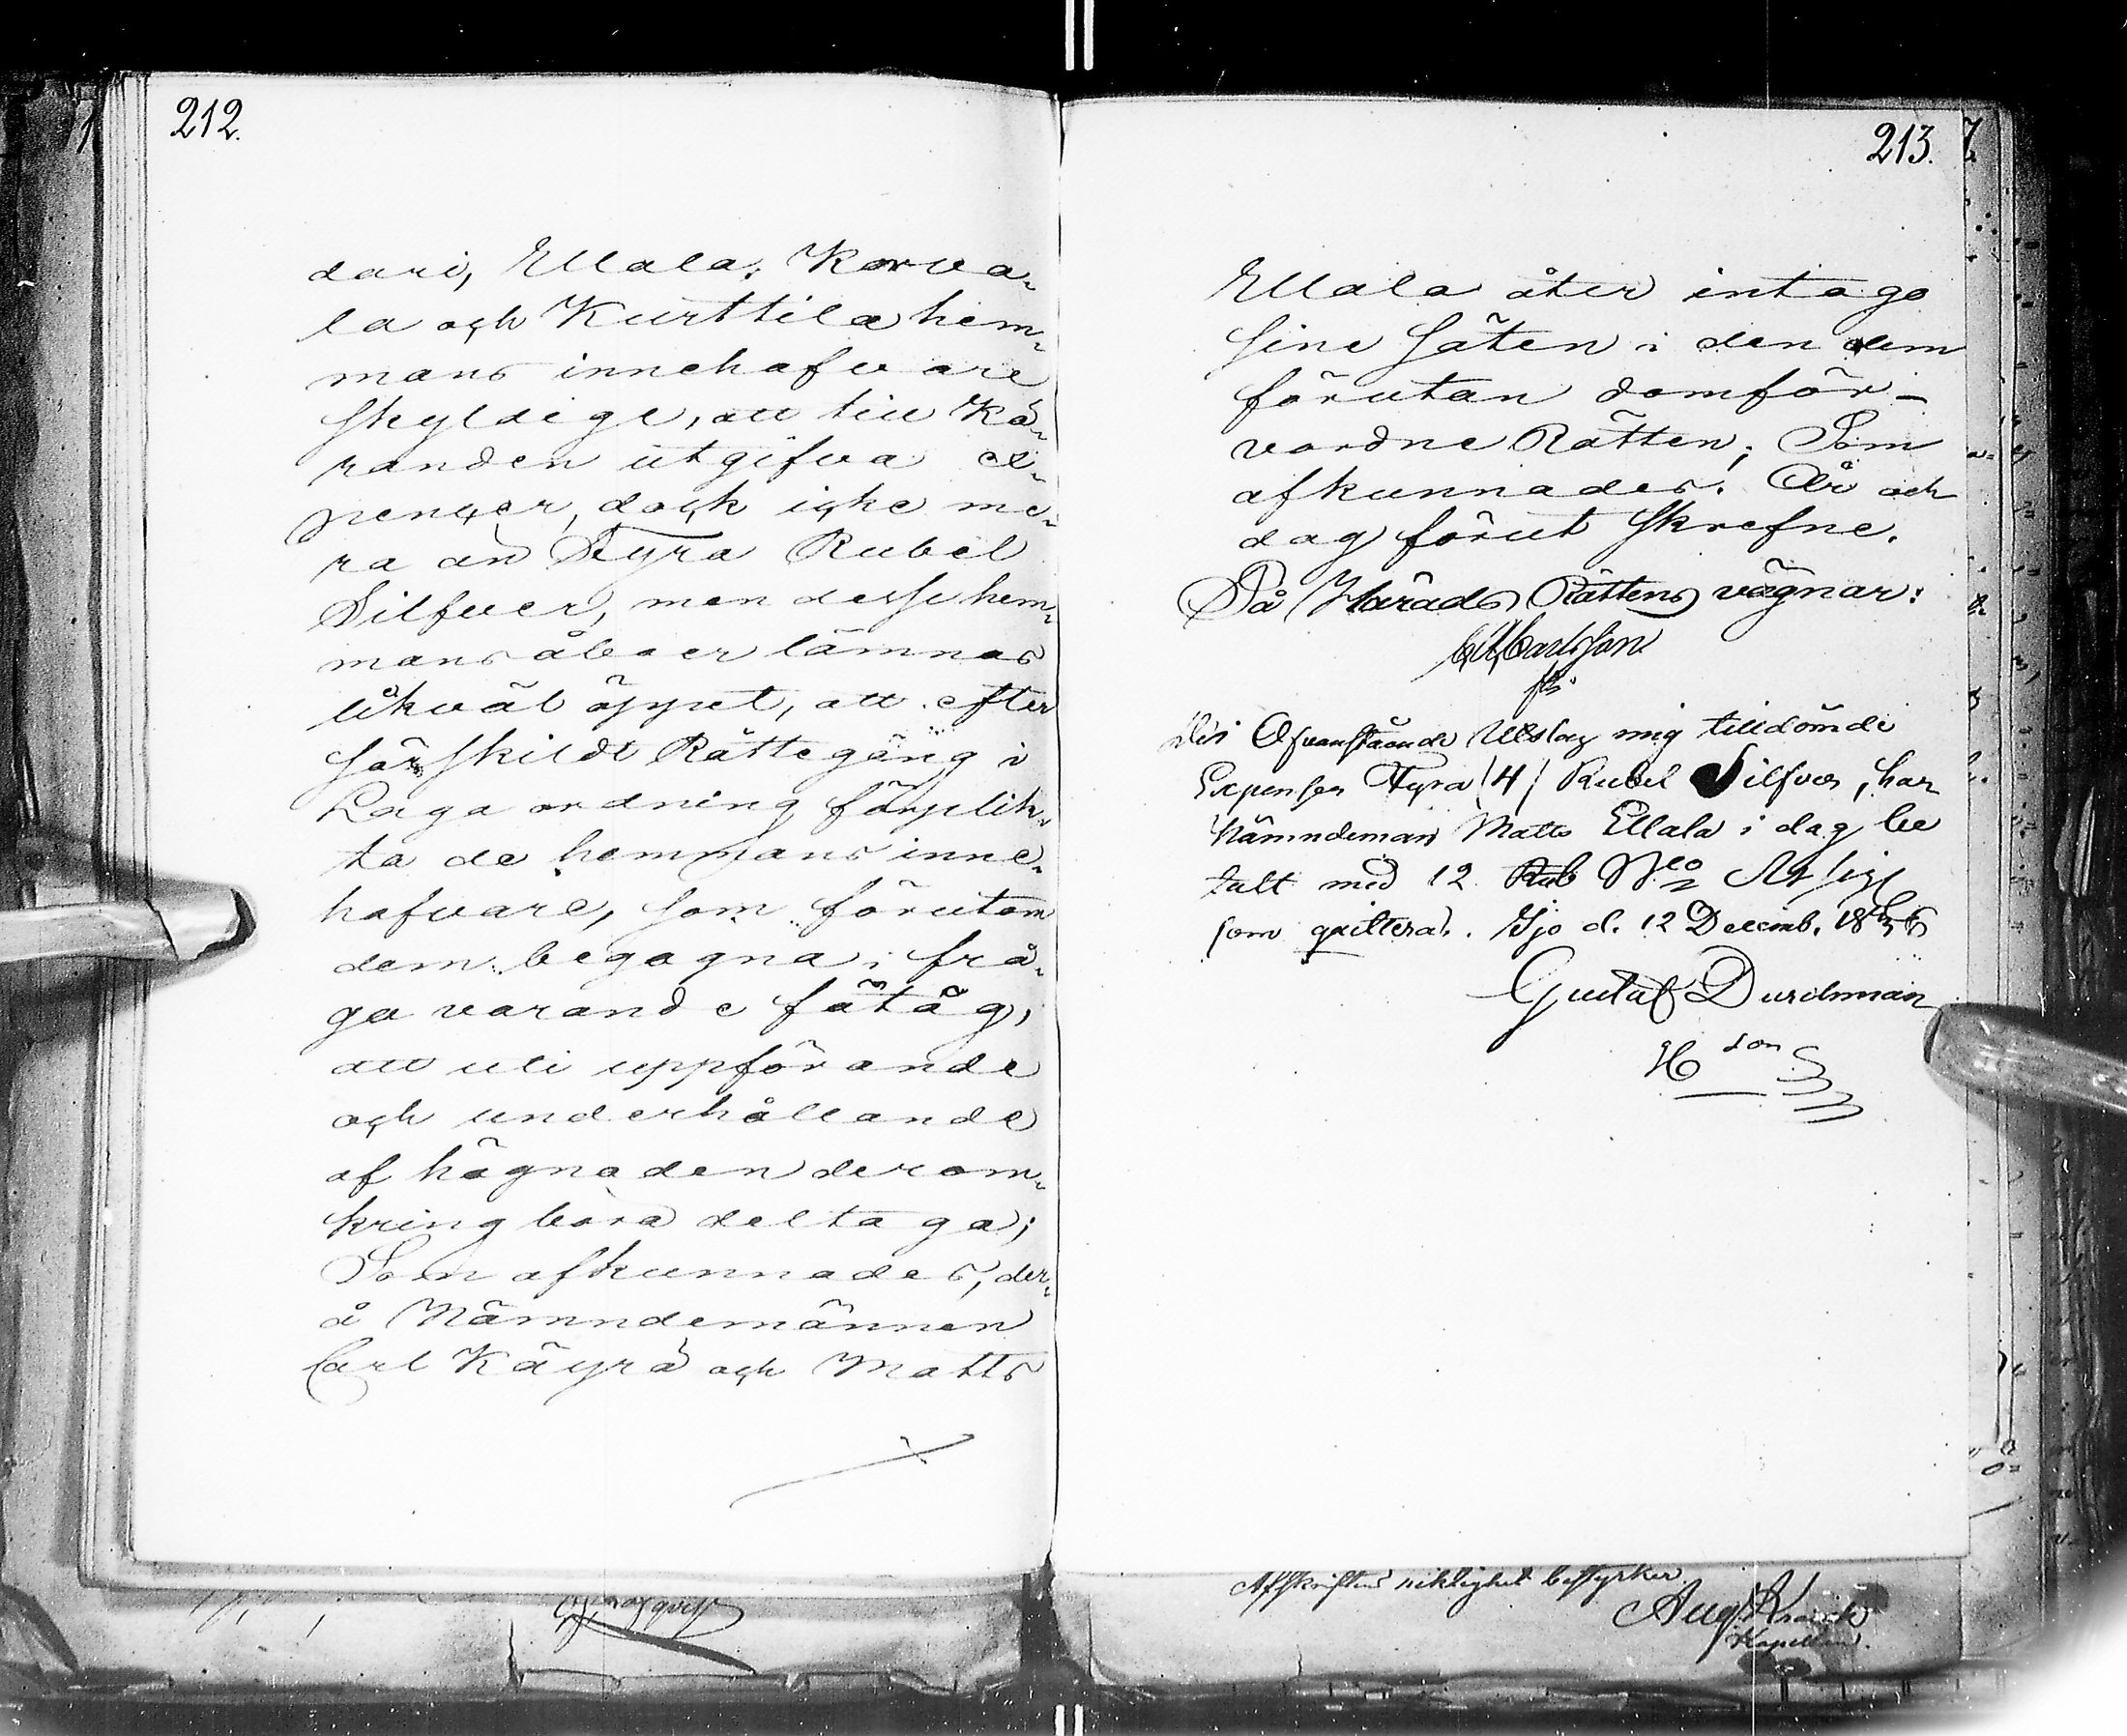 212.
dari, Ellala, Korva-
la och Kurttila hem-
mans innehafvare
skyldige, att till Kä-
randen utgifva ex-
penser, dock icke me-
ra än Fyra Rubel
Silfver, men desse hem-
mansåboer lämnas
likväl öppet, att efter
särskildt Rättegång i
Laga ordning förplik-
ta de hemmans inne-
hafvare, som förutom
dem begagna i frå-
ga varande fätåg,
att uti uppförande
och underhållande
af hägnaden derom-
kring böra deltaga;
Som afkunnades, der-
å Nämndemännen
Carl Käyrä och Matts
213.
Ellala åter intago
sine säten i den dem
förutan domför-
vordne Rätten; Som
afkunnades. År och
dag förut skrefne.
På Härads Rättens vägnar:
Carlsson
Ofvanstående Utslag mig tilldömde
Expenser Fyra /4/ Rubel Silfver, har
Nämndeman Matts Ellala i dag be
talt med 12
som quitteras. Ijo d. 12 Decemb. 1856
Gustaf Durchman
H son
Afskriftens riktighet bestyrker
Aug.
Kapellan.